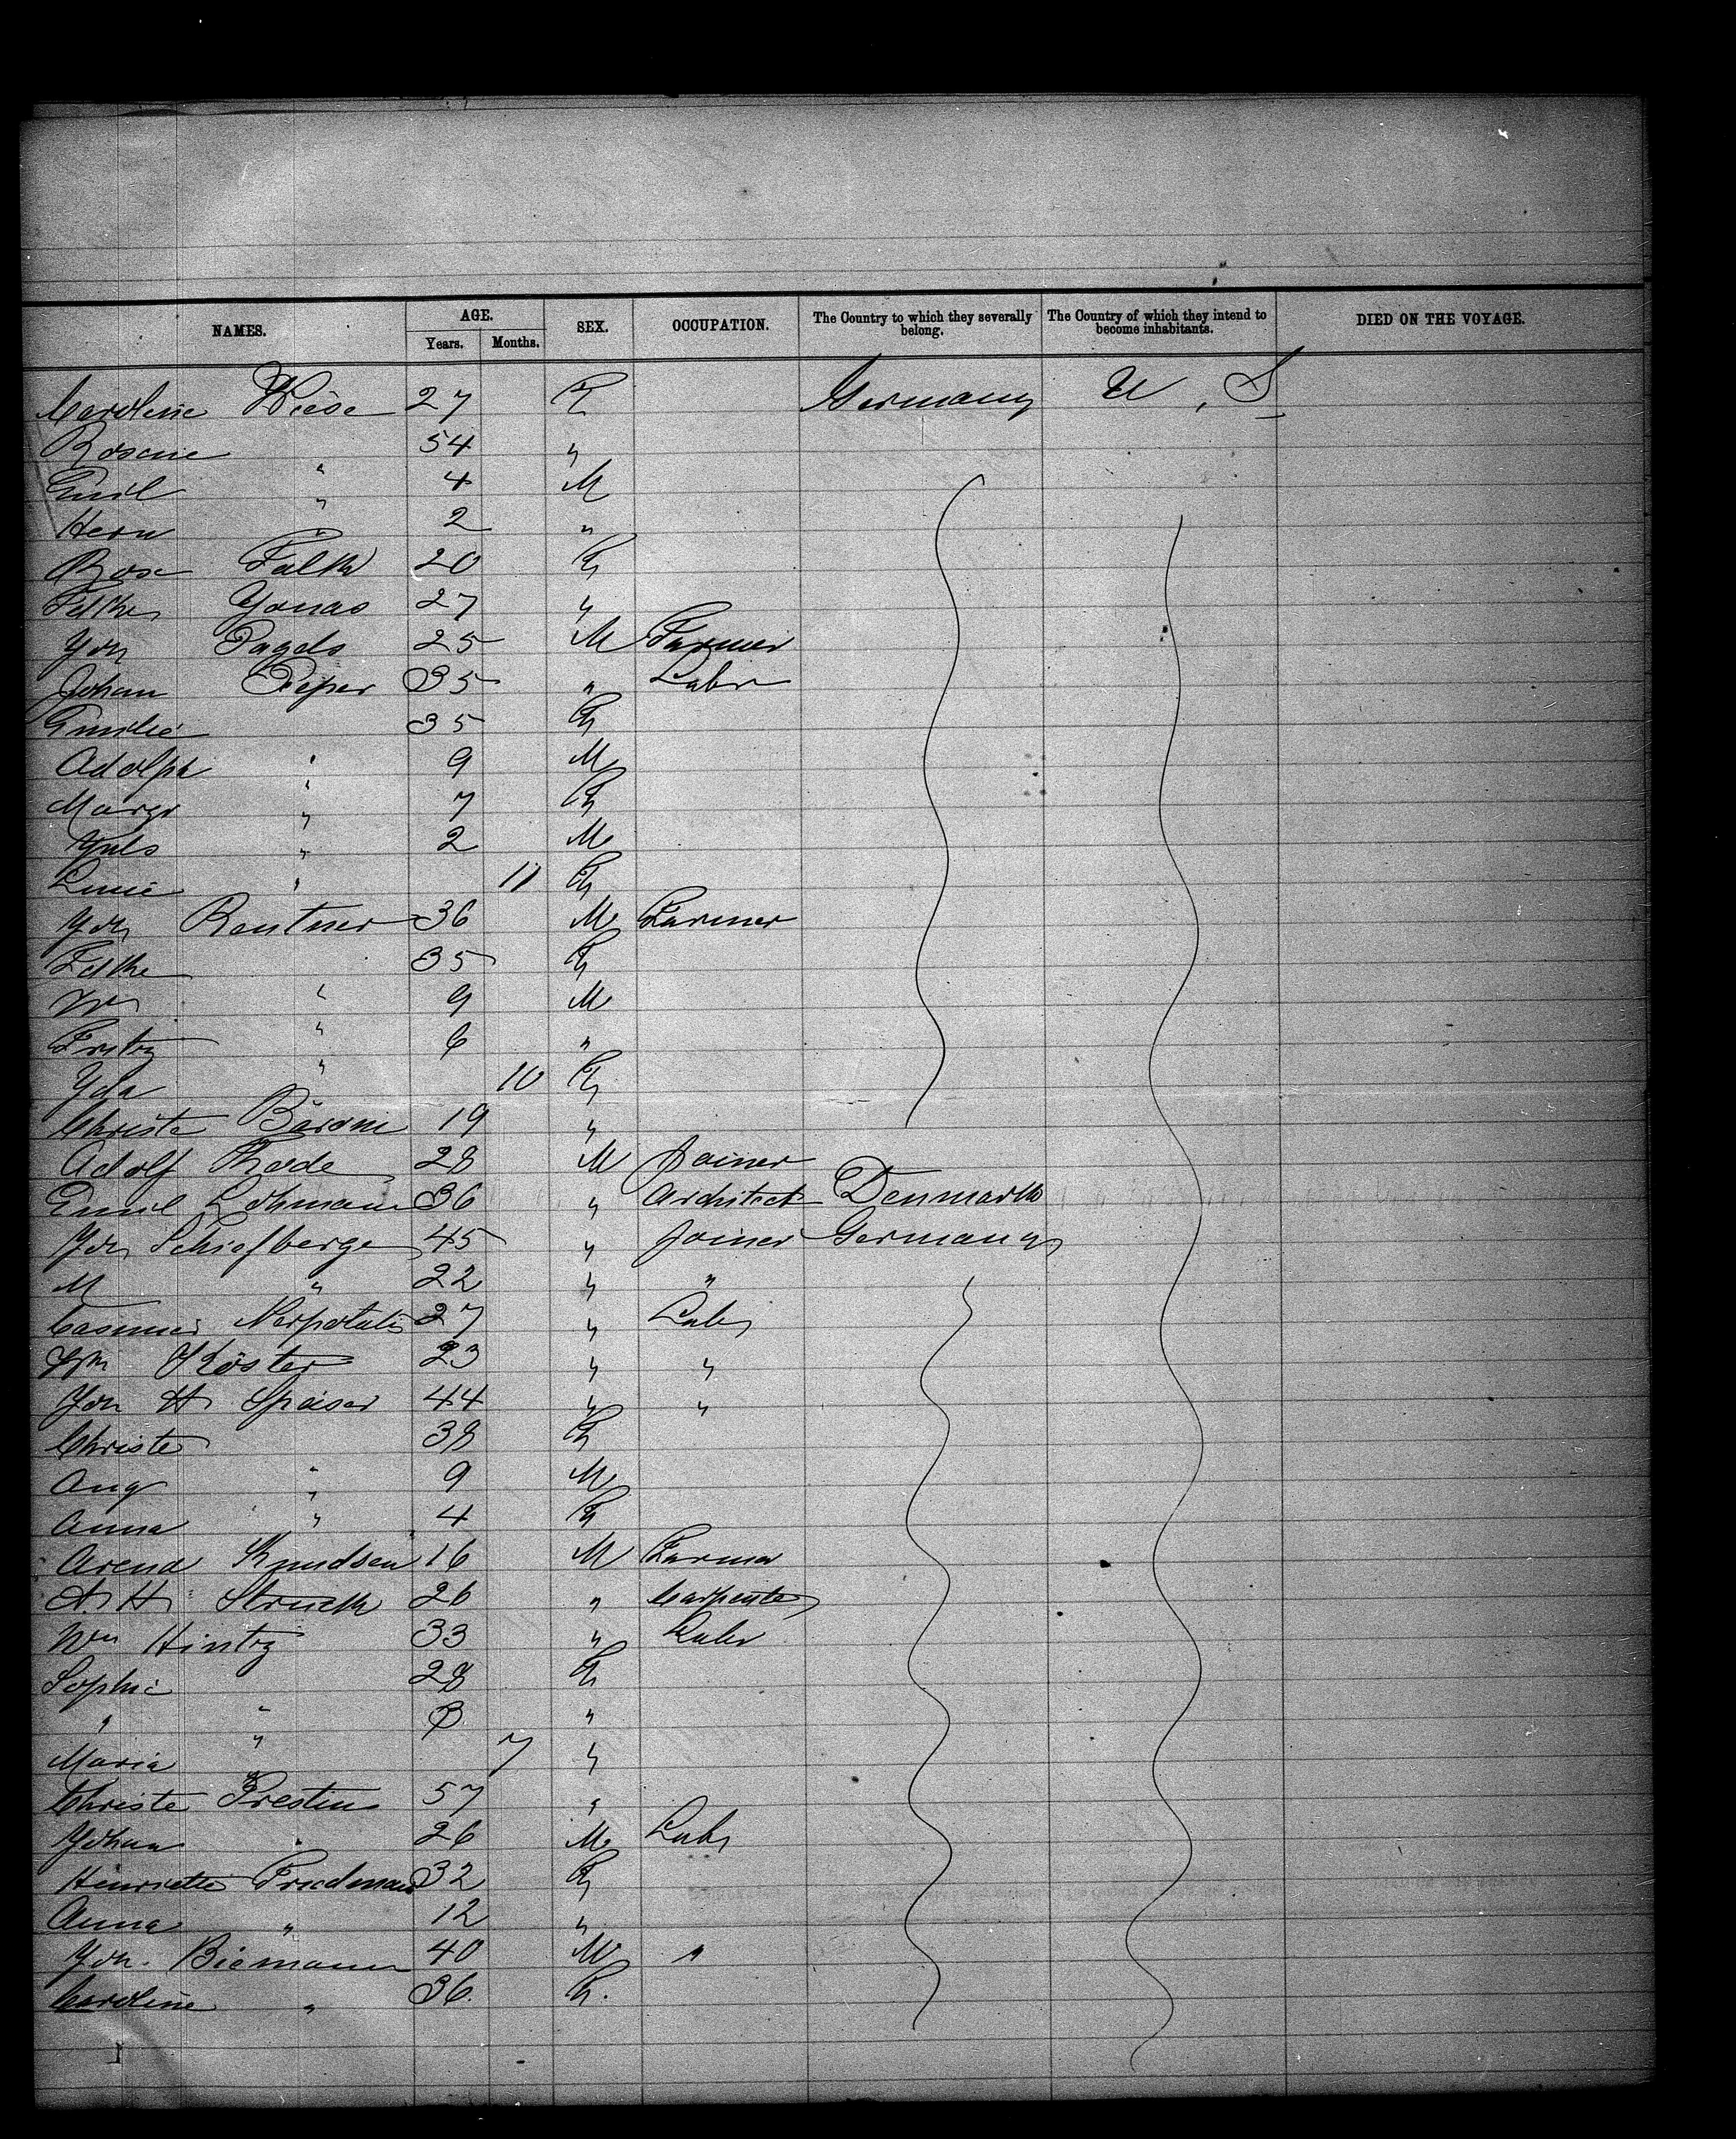 NAMES. AGE. SEX. OCCUPATION. The Country to which they severally belong. The Country of which they intend to become inhabitants. DIED ON THE VOYAGE.
Years. Months.
Caroline Wiese 27 F Germany U. S.
Rosine " 54 "
Emil " 4 M
Herm " 2 "
Rosa Falk 20 F
Yonas 27 "
Joh Pagels 25 M Farmer
Johan Pieper 35 " Labr
Emilie 35 F
Adolph " 9 M
Margr " 7 F
Juls " 2 M
Luise " 11 F
Joh Rentner 36 M Farmer
35 F
Wm " 9 M
Fritz " 6 "
Ida " 10 F
Christe 19 "
Adolf Thode 28 M Joiner
Emil Lohmann 36 " Architect Denmark
Joh Schiefberge 45 " Joiner Germany
M " 22 " "
Casimir 27 " Labr
Wm Köster 23 " "
Joh H Speiser 44 " "
Christe 38 F
Aug " 9 M
Anna " 4 F
Arend Knudsen 16 M Farmer
A. H. Struck 26 " Carpenter
Wm Hintz 33 " Labr
Sophie 28 F
" " 3 "
Maria " 7 "
Christe Prestin 57 "
Johan " 26 M Labr
Henriette Friedeman 32 F
Anna " 12 "
Joh. Biemann 40 M "
Caroline " 36 F.